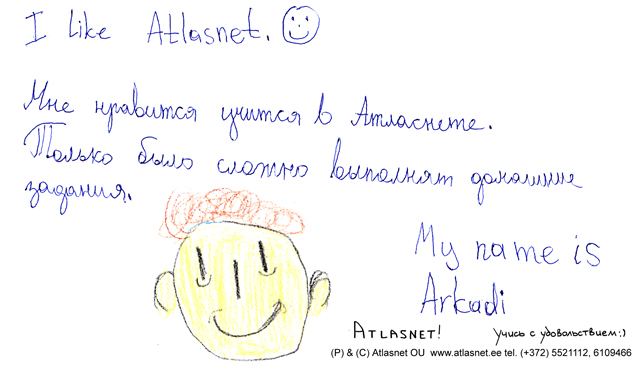 I like Atlasnet.
Мне нравится учится в Атласнете.
Только было сложно выполнят домашние
задания.
My name is
Arkadi
ATLASNET! Учись с удовольствием:)
(P) & (C) Atlasnet OU www.atlasnet.ee tel. (+372) 5521112, 6109466